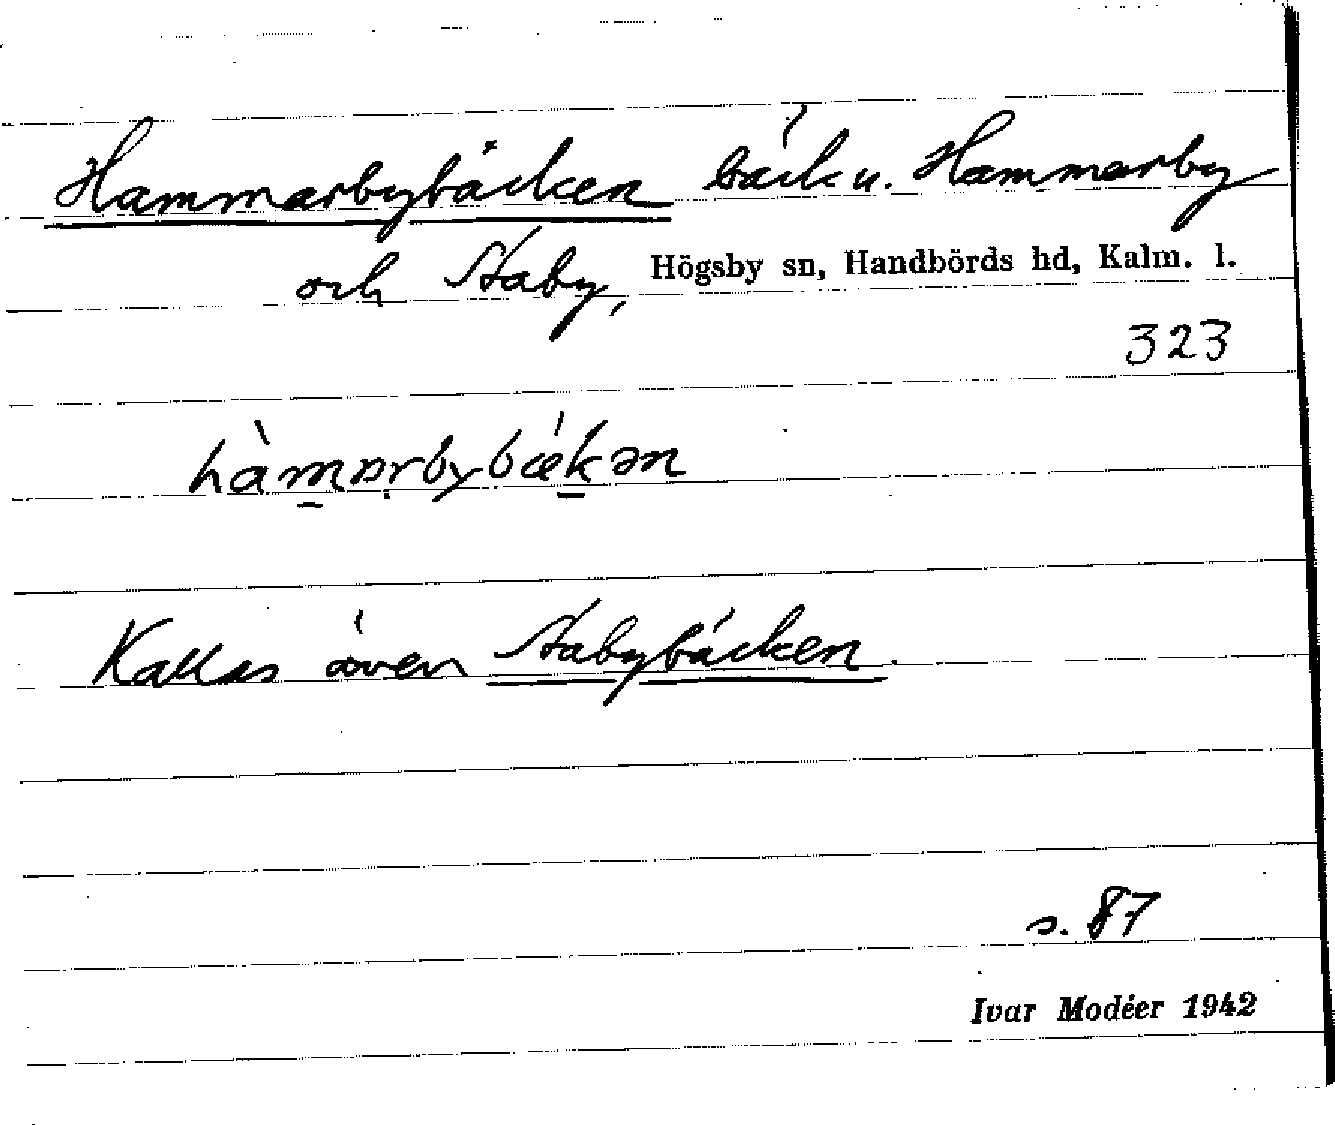 Hammarbybäcken bäck u. Hammarby
och Staby, Högsby sn, Handbörds hd, Kalm. l.
323
hàmɒrbybǽkən
Kallas även Stabybäcken.
s. 87
Ivar Modéer 1942